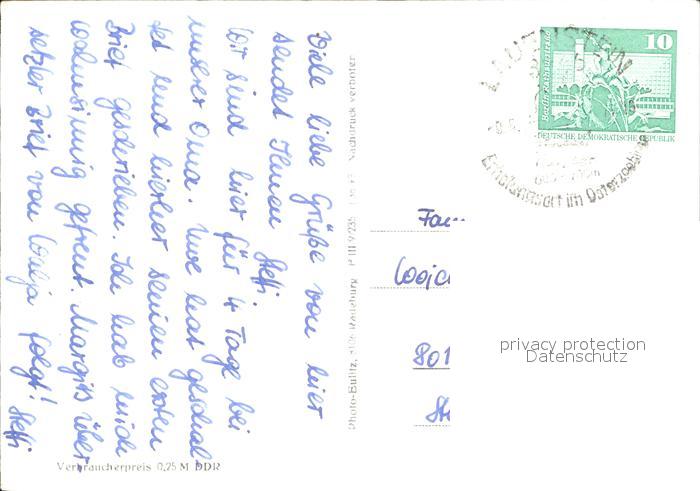 Viele liebe Grüße von hier
sendet Ihnen Steffi.
Wir sind hier für 4 Tage bei
unserer Oma. Uwe hat
tet und hierher seinen ersten
Brief geschrieben. Ich hab mich
wahnsinnig gefreut. Margitts über
setzter Brief von folgt! Steffi
Photo-Bulitz, Radeburg P III 9/235 Nachdruck verboten
Verbraucherpreis 0,25 M DDR
10
DEUTSCHE DEMOKRATISCHE REPUBLIK
LAUENSTEIN
Erholungsort im Osterzgebirge
Fam
801
privacy protection
Datenschutz